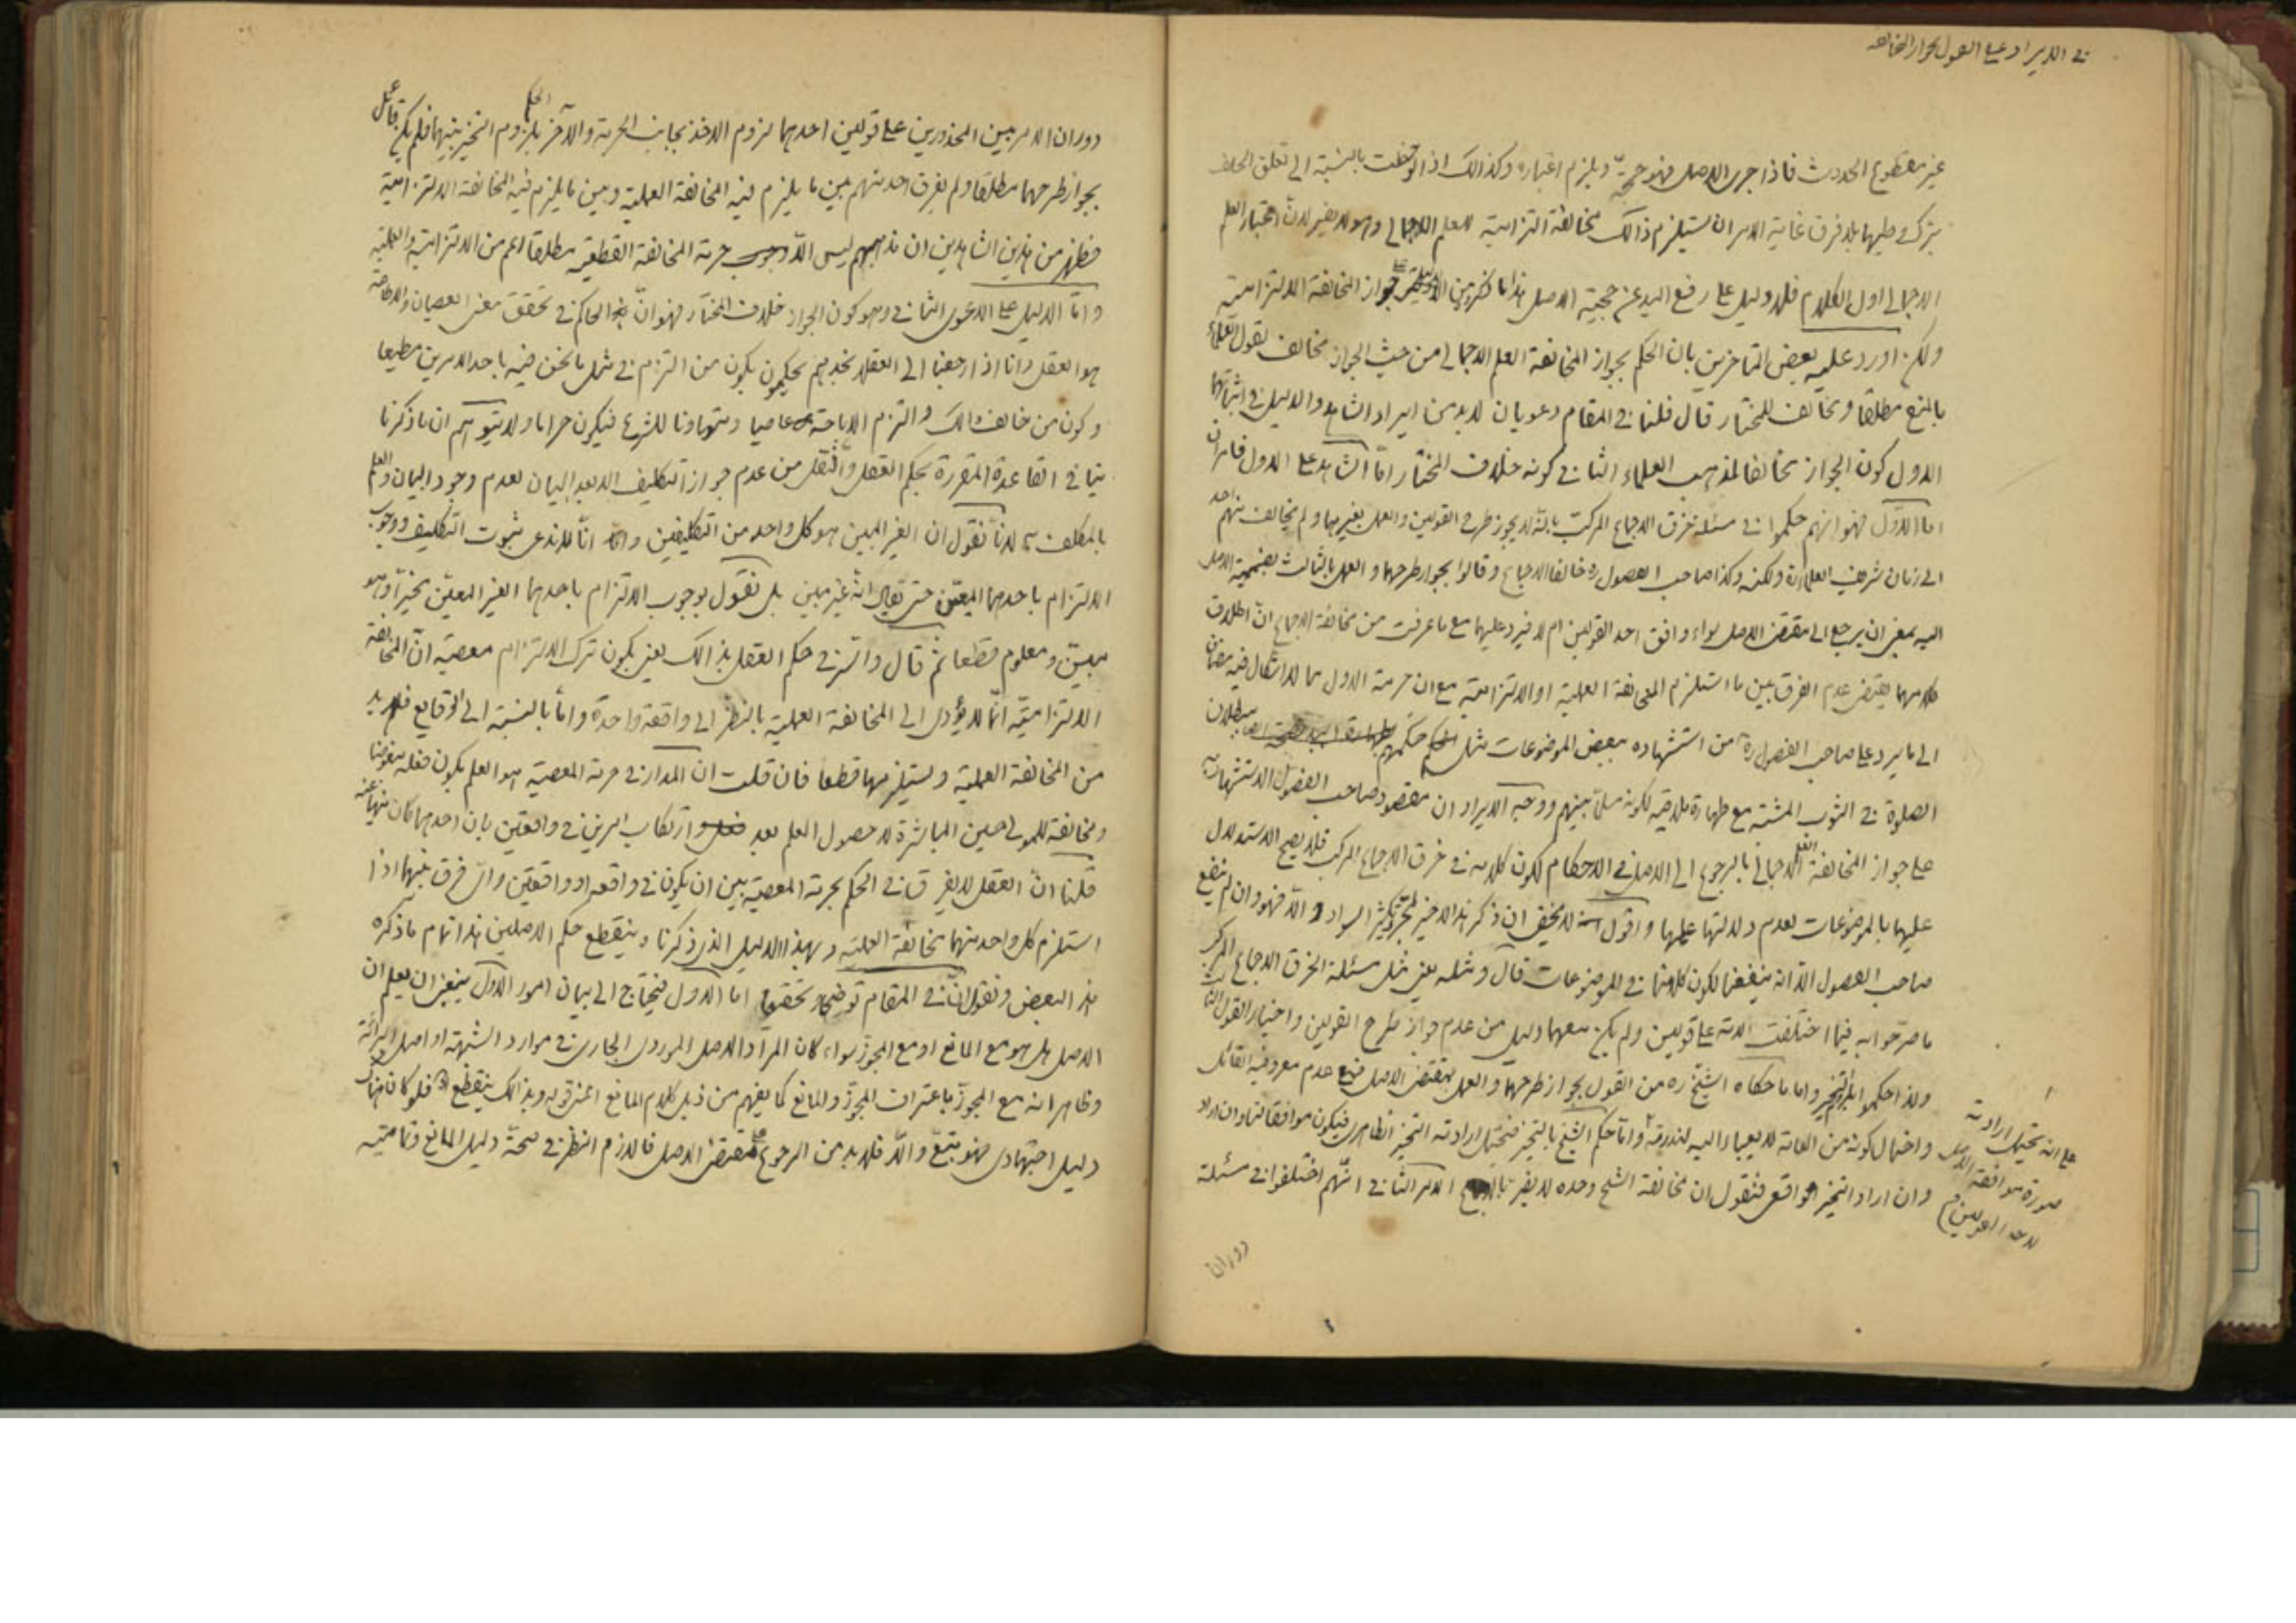 في الايراد على القول بجواز المخالفة
غير مقطوع الحدوث فاذا جرى الاصل فهو حجة ويلزم اعتباره وكذالك اذا لوحظت بالنسبة الى تعلق الحلف
بترك وطيها بلا فرق غاية الامر ان يستلزم ذالك مخالفة التزامية للعلم الاجمالي وهو لا يضر لان اعتبار العلم
الاجمالي اول الكلام فلا دليل على رفع اليد عن حجية الاصل هذا ما ذكره من جواز المخالفة الالتزامية
ولكن اورد عليه بعض المتاخرين بان الحكم بجواز المخالفة العلم الاجمالي من حيث الجواز مخالف لقول العلماء
بالمنع مطلقا ومخالف للمختار قال فلنا في المقام دعويان لابد من ايراد الشاهد والدليل في اثباتهما
الاول كون الجواز مخالفا لمذهب العلماء الثاني كونه خلاف المختار اما الشاهد على الاول فامران
اما الاول فهو انهم حكموا في مسئلة خرق الاجماع المركب بانه لا يجوز طرح القولين والعمل بغيرهما ولم يخالف منهم احد
الى زمان شريف العلماء ره ولكنه وكذا صاحب الفصول ره خالفا الاجماع وقالوا بجواز طرحهما والعمل بالثالث بضميمة الاصل
اليه بمعنى ان يرجع الى مقتضى الاصل سواء وافق احد القولين ام لا فيرد عليهما مع ما عرفت من مخالفة الاجماع ان اطلاق
كلامهما يقتضي عدم الفرق بين ما استلزم المخالفة العملية او الالتزامية مع ان حرمة الاول مما لا اشكال فيه مضافا
الى ما يرد على صاحب الفصول ره من استشهاده ببعض الموضوعات مثل حكمهم ببطلان
الصلوة في الثوب المشتبه مع طهارة ملاقيه لكونه مسلما بينهم ووجه الايراد ان مقصود صاحب الفصول الاستشهاد به
على جواز المخالفة العلم الاجمالي بالرجوع الى الاصل في الاحكام لكون كلامه في خرق الاجماع المركب فلا يصح الاستدلال
عليها بالموضوعات لعدم دلالتها عليها واقول لا يخفى ان ذكر هذا الاخير لمجرد تكثير السواد والا فهو وان لم ينفع
صاحب الفصول الا انه ينفعنا لكون كلامنا في الموضوعات قال ومثله يعني مثل مسئلة الخرق الاجماع المركب
ما صرحوا به فيما اختلفت الامة على قولين ولم يكن معهما دليل من عدم جواز طرح القولين واختيار القول الثالث
ولذا حكموا بالتخيير واما ما حكاه الشيخ ره من القول بجواز طرحهما والعمل بمقتضى الاصل فمع عدم معروفية القائل
واحتمال كونه من العامة لا يعباء اليه لندرته واما حكم الشيخ بالتخيير فيحتمل ارادته التخيير الظاهري فيكون موافقا لنا وان اراد
وان اراد التخيير الواقعي فنقول ان مخالفة الشيخ وحده لا يضر بالاجماع الامر الثاني انهم اختلفوا في مسئلة
على انه يحتمل ارادته
صورة موافقة الاصل
لاحد القولين م
دوران
دوران الامر بين المحذورين على قولين احدهما لزوم الاخذ بجانب الحرمة والآخر الحكم بلزوم التخيير بينهما فلم يكن قائل
بجواز طرحهما مطلقا ولم يفرق احد منهم بين ما يلزم فيه المخالفة العملية وبين ما يلزم فيه المخالفة الالتزامية
فظهر من هذين الشاهدين ان مذهبهم ليس الا حرمة المخالفة القطعية مطلقا اعم من الالتزامية والعملية
واما الدليل على الدعوى الثاني وهو كون الجواز خلاف المختار فهو ان الحاكم في تحقق معنى العصيان والاطاعة
هو العقل وانا اذا رجعنا الى العقلاء نجدهم يحكمون بكون من التزم في مثل ما نحن فيه باحد الامرين مطيعا
وكون من خالف ذالك والتزم الاباحة عاصيا ومتهاونا للشرع فيكون حراما ولا يتوهم ان ما ذكرنا
ينافي القاعدة المقررة بحكم العقل والنقل من عدم جواز التكليف الا بعد البيان لعدم وجود البيان والعلم
بالمكلف به لانا نقول ان الغير المبين هو كل واحد من التكليفين وانا لا ندعى بثبوت التكليف ووجوب
الالتزام باحدهما المعين حتى يقال انه غير مبين بل نقول بوجوب الالتزام باحدهما الغير المعين تخييرا وهو
مبين ومعلوم قطعا ثم قال والسر في حكم العقل بذالك يعني بكون ترك الالتزام معصية ان المخالفة
الالتزامية انما لا يؤدى الى المخالفة العملية بالنظر الى واقعة واحدة واما بالنسبة الى الوقايع فلابد
من المخالفة العملية ويستلزمها قطعا فان قلت ان المدار في حرمة المعصية هو العلم بكون فعله مبغوضا
ومخالفة للمولى حين المباشرة لا حصول العلم بعد ارتكاب امرين في واقعتين بان احدهما كان منهيا عنه
قلنا ان العقل لا يفرق في الحكم بحرمة المعصية بين ان يكون في واقعة او واقعتين واى فرق بينهما اذا
استلزم كل واحد منهما مخالفة العملية وبهذا الدليل الذى ذكرنا وينقطع حكم الاصلين هذا تمام ما ذكره
هذا البعض ونقول ان في المقام توضيحا وتحقيقا اما الاول فيحتاج الى بيان امور الاول ينبغى ان يعلم ان
الاصل هل هو مع المانع او مع المجوز سواء كان المراد الاصل الموردى الجارى في موارد الشبهة او اصل البرائة
وظاهر انه مع المجوز باعتراف المجوز والمانع كما يفهم من ذيل كلام المانع وبذالك ينقطع فلو كان هناك
دليل اجتهادى فهو يتبع والا فلابد من الرجوع على مقتضى الاصل فاللازم النظر في صحة دليل المانع وتماميته